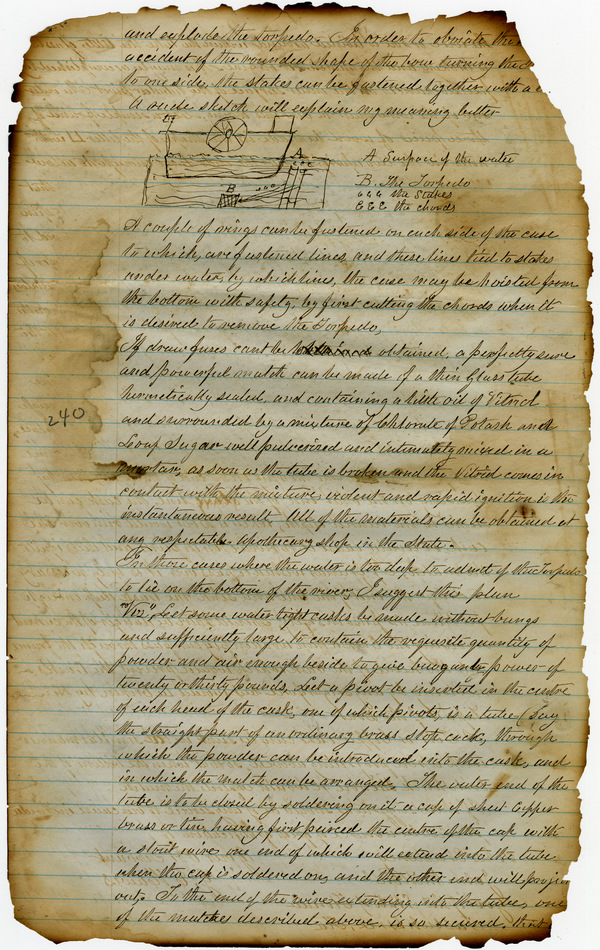 and explode the Torpedo. In order to obviate the
accident of the rounded shape of the bow turning the
to one side, the stakes can be fastened together with a
A rude sketch will explain my meaning better
A
B
A Surface of the water
B. The Torpedo
the Stakes
the chords
A couple of rings can be fastened on each side of the case
to which, are fastened lines and these lines tied to stakes
under water, by which lines, the case may be hoisted from
the bottom with safety, by first cutting the chords when it
is desired to remove the Torpedo,
If draw fuses cant be obtained, a perfectly sure
and powerful match can be made of a thin Glass tube
hermetically sealed, and containing a little oil of Vitriol
240
and surrounded by a mixture of Chlorate of Potash and
Loaf Sugar well pulverized and intimately mixed in a
mortar, as soon as the tube is broken and the Vitriol comes in
contact with the mixture, violent and rapid ignition is the
instantaneous result. All of the materials can be obtained at
any respectable Apothecary shop in the State.
In those cases where the water is too deep to admit of the Torpedo
to lie on the bottom of the river, I suggest this plan
"Viz", Let some water tight casks be made without bungs
and sufficiently large to contain the requisite quantity of
powder and air enough beside to give buoyant power of
twenty or thirty pounds, Let a pivot be inserted in the centre
of each head of the cask, one of which pivots, is a tube (Say
the straight part of an ordinary brass stop cock, through
which the powder can be introduced into the cask, and
in which the match can be arranged, The outer end of the
tube is to be closed by soldering on it a cap of sheet Copper
brass or tin, having first peirced the centre of the cap with
a stout wire one end of which will extend into the tube
when the cap is soldered on, and the other end will
out. To the end of the wire extending into the tube, one
of the matches described above, is so secured, that